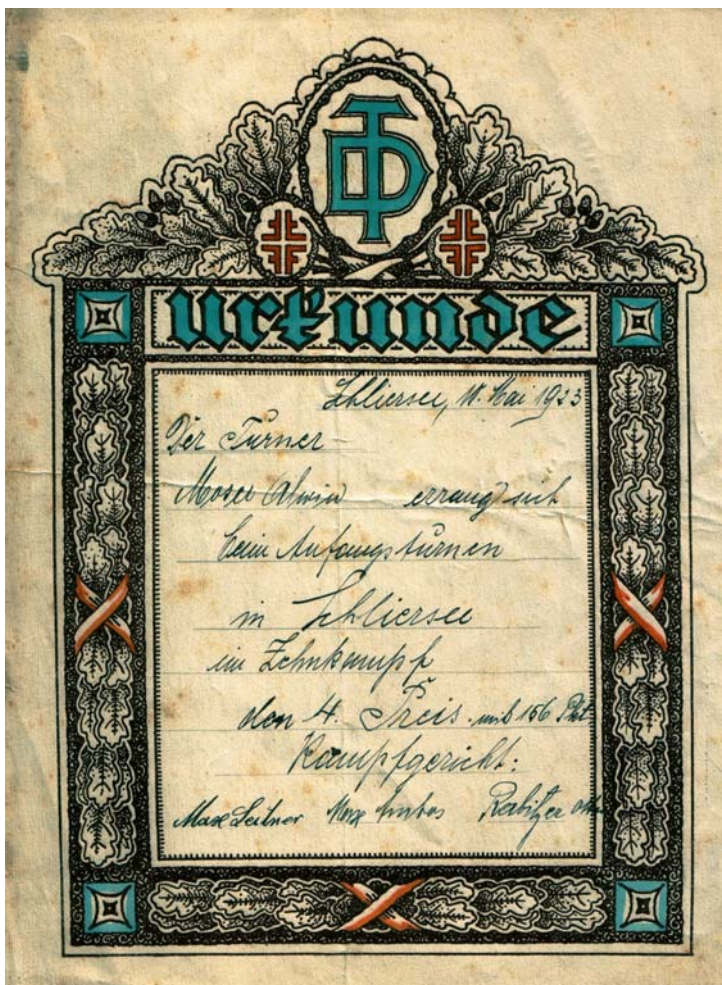 DT
Urkunde
Schliersee, 18. Mai 1923
Der Turner
Moser Alwin errang sich
beim Anfangsturnen
in Schliersee
im Zehnkampf
den 4. Preis mit 156 Pkt
Kampfgericht:
Max Leitner Max Rabitzer